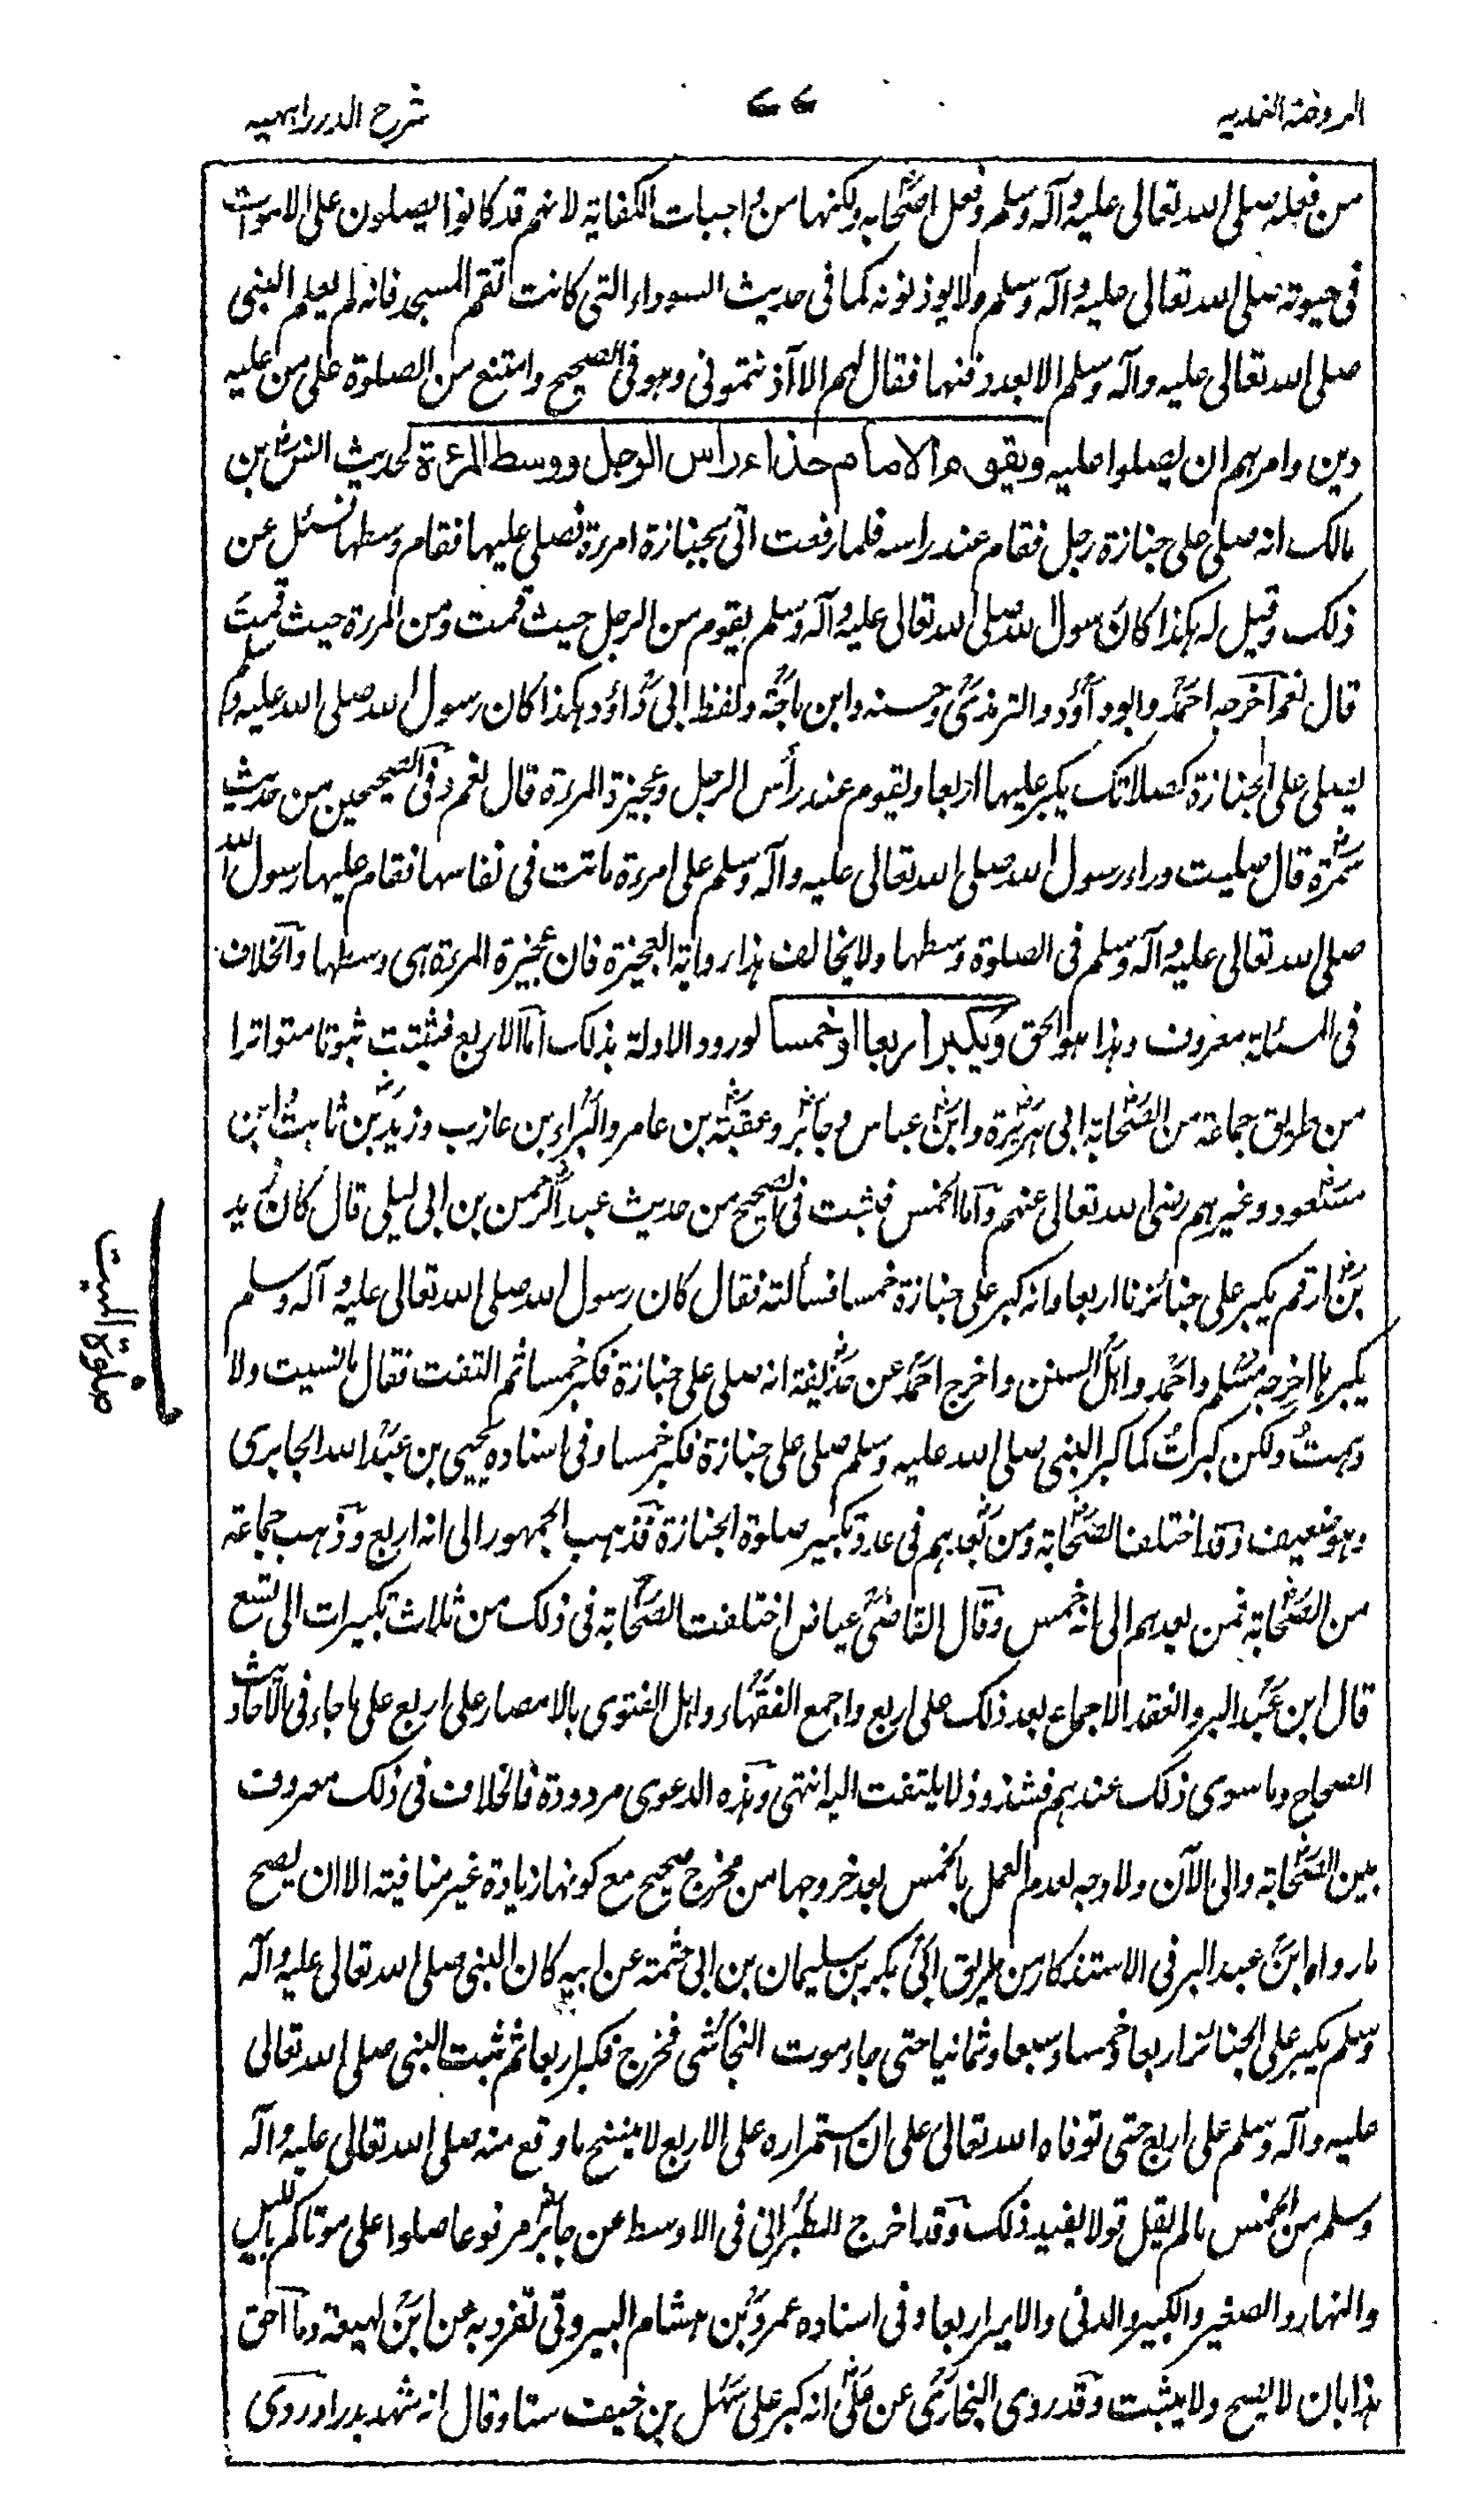 الروضة الندية
٧٧
شرح الدرر البهية
من فعله صلى الله تعالى عليه وآله وسلم وفعل اصحابه ولكنها من واجبات الكفاية لانهم قد كانوا يصلون على الاموات
فى حيوته صلى الله تعالى عليه وآله وسلم ولا يوذنونه كما فى حديث السوداء التى كانت تقم المسجد فانه لم يعلم النبى
صلى الله تعالى عليه وآله وسلم الا بعد دفنها فقال لهم الا آذنتمونى وهو فى الصحيح وامتنع من الصلوة على من عليه
دين وامرهم ان يصلوا عليه ويقوم الامام حذاء راس الرجل ووسط المرءة لحديث انس بن
مالك انه صلى على جنازة رجل فقام عند راسه فلما رفعت اتى بجنازة امرءة فصلى عليها فقام وسطها فسئل عن
ذلك وقيل له هكذا كان رسول الله صلى الله تعالى عليه وآله وسلم يقوم من الرجل حيث قمت ومن المرءة حيث قمت
قال نعم اخرجه احمد وابوداود والترمذى وحسنه وابن ماجة ولفظ ابى داود هكذا كان رسول الله صلى الله عليه وسلم
يصلى على الجنازة كصلاتك يكبر عليها اربعا ويقوم عند رأس الرجل وعجيزة المرءة قال نعم وفى الصحيحين من حديث
سمرة قال صليت وراء رسول الله صلى الله تعالى عليه وآله وسلم على امرءة ماتت فى نفاسها فقام عليها رسول الله
صلى الله تعالى عليه وآله وسلم فى الصلوة وسطها ولا يخالف هذا رواية العجيزة فان عجيزة المرءة هى وسطها والخلاف
فى المسئلة معروف وهذا هو الحق ويكبر اربعا او خمسا لورود الادلة بذلك اما الاربع فثبتت ثبوتا متواترا
من طريق جماعة من الصحابة ابى هريرة وابن عباس وجابر وعقبة بن عامر والبراء بن عازب وزيد بن ثابت وابن
مسعود وغيرهم رضى الله تعالى عنهم واما الخمس فثبت فى الصحيح من حديث عبد الرحمن بن ابى ليلى قال كان زيد
بن ارقم يكبر على جنائزنا اربعا وانه كبر على جنازة خمسا فسألته فقال كان رسول الله صلى الله تعالى عليه وآله وسلم
يكبرها اخرجه مسلم واحمد واهل السنن واخرج احمد عن حذيفة انه صلى على جنازة فكبر خمسا ثم التفت فقال ما نسيت ولا
وهمت ولكن كبرت كما كبر النبى صلى الله عليه وسلم صلى على جنازة فكبر خمسا وفى اسناده يحيى بن عبد الله الجابرى
وهو ضعيف وقد اختلف الصحابة ومن بعدهم فى عدد تكبير صلوة الجنازة فذهب الجمهور الى انه اربع وذهب جماعة
من الصحابة فمن بعدهم الى انه خمس وقال القاضى عياض اختلفت الصحابة فى ذلك من ثلاث تكبيرات الى تسع
قال ابن عبد البر وانعقد الاجماع بعد ذلك على اربع واجمع الفقهاء واهل الفتوى بالامصار على اربع على ما جاء فى الاحاديث
الصحاح وما سوى ذلك عندهم فشذوذ لا يلتفت اليه انتهى وهذه الدعوى مردودة فالخلاف فى ذلك معروف
بين الصحابة والى الآن ولا وجه لعدم العمل بالخمس بعد خروجها من مخرج صحيح مع كونها زيادة غير منافية الا ان يصح
ما رواه ابن عبد البر فى الاستذكار من طريق ابى بكر بن سليمان بن ابى حثمة عن ابيه كان النبى صلى الله تعالى عليه وآله
وسلم يكبر على الجنائز اربعا وخمسا وسبعا وثمانيا حتى جاء موت النجاشى فخرج فكبر اربعا ثم ثبت النبى صلى الله تعالى
عليه وآله وسلم على اربع حتى توفاه الله تعالى على ان استمراره على الاربع لا ينسخ ما وقع منه صلى الله تعالى عليه وآله
وسلم من الخمس ما لم يقل قولا يفيد ذلك وقد اخرج الطبرانى فى الاوسط عن جابر مرفوعا صلوا على موتاكم بالليل
والنهار والصغير والكبير والدنى والامير اربعا وفى اسناده عمرو بن هشام البيروتى تفرد به عن ابن لهيعة وما احق
هذا بان لا يصح ولا يثبت وقد روى البخارى عن على انه كبر على سهل بن حنيف ستا وقال انه شهد بدرا وروى
صلوة الميت